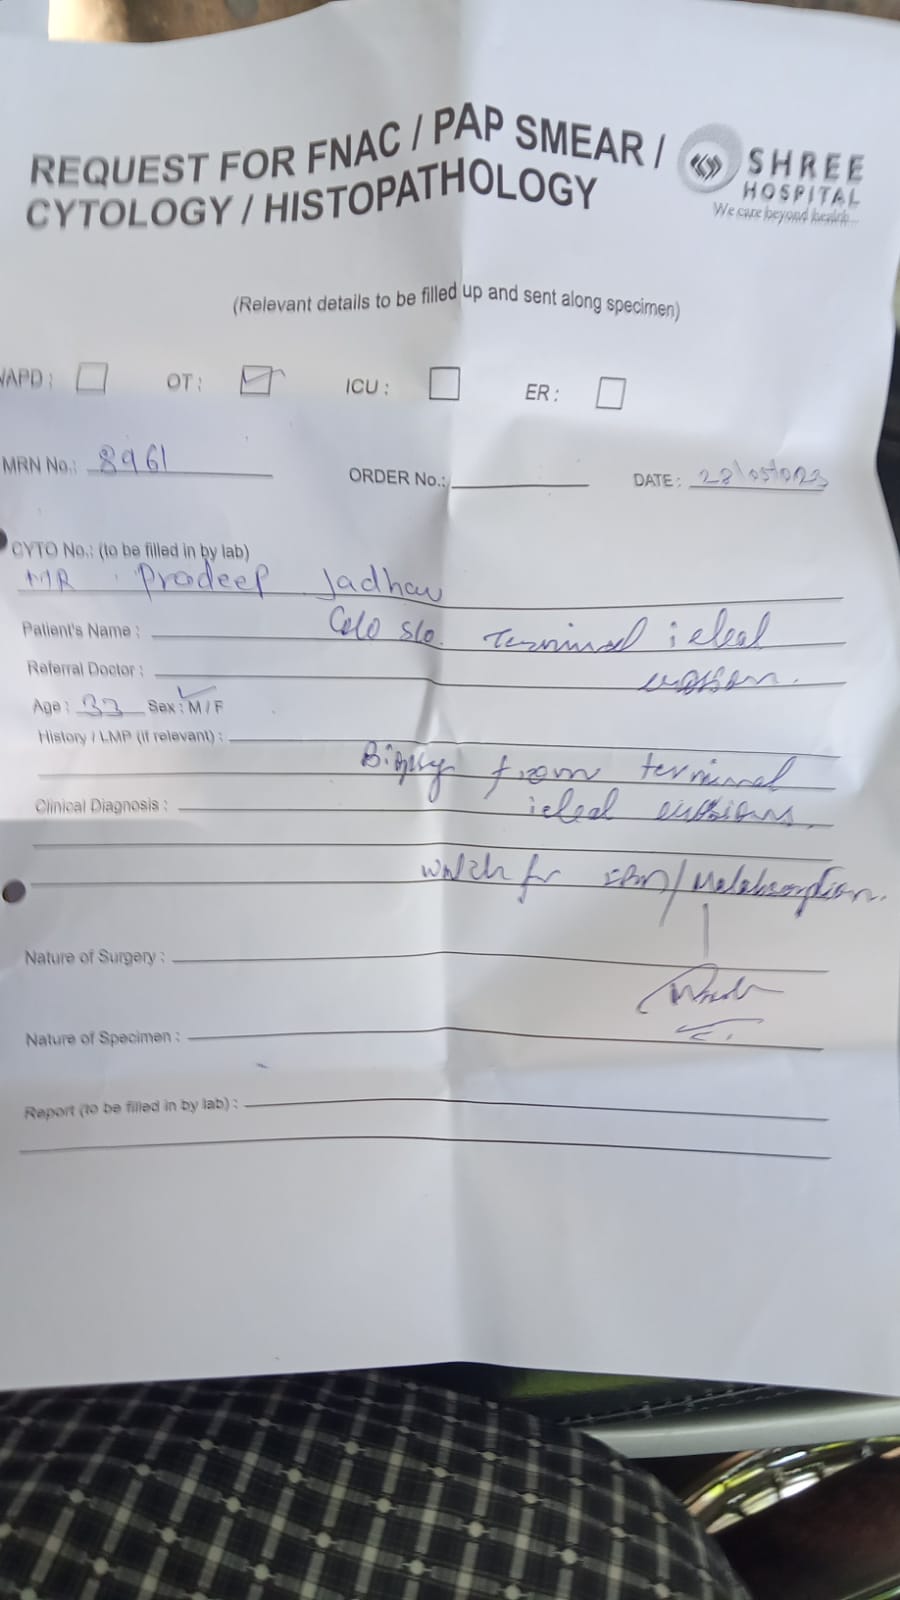 REQUEST FOR FNAC / PAP SMEAR /
CYTOLOGY / HISTOPATHOLOGY
SHREE
HOSPITAL
We care beyond health...
(Relevant details to be filled up and sent along specimen)
/APD : OT : ICU : ER :
MRN No.: 8961 ORDER No.: DATE : 28/05/023
CYTO No.: (to be filled in by lab)
MR . Pradeep Jadhav
Patient's Name : Colo S/o. Terminal ileal
Referral Doctor :
Age : 33 Sex : M / F
History / LMP (if relevant) :
Biopsy from terminal
Clinical Diagnosis : ileal erosions.
watch for /Malabsorption.
Nature of Surgery :
Nature of Specimen :
Report (to be filled in by lab) :